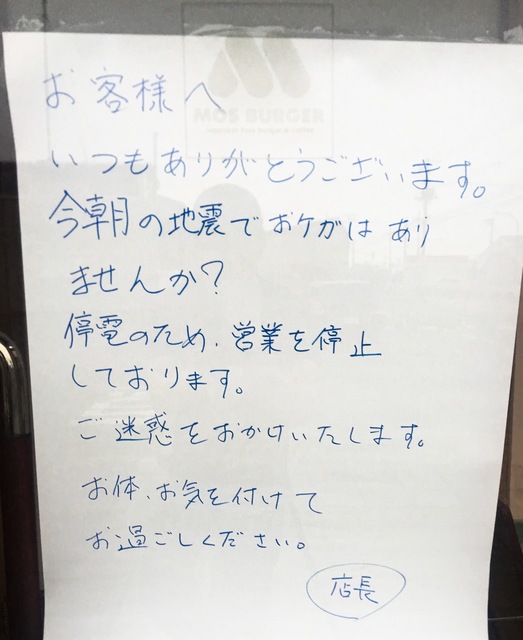 MOS BURGER
お客様へ
いつもありがとうございます。
今朝の地震でおケガはあり
ませんか？
停電のため、営業を停止
しております。
ご迷惑をおかけいたします。
お体、お気を付けて
お過ごしください。
店長